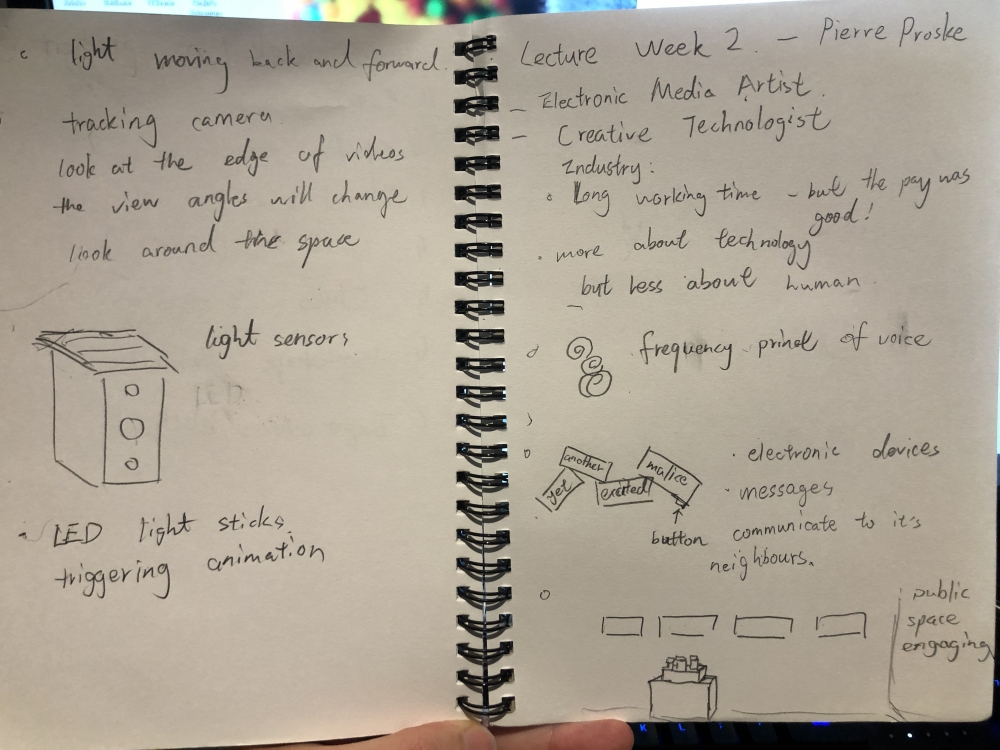 light moving back and forward.
tracking camera
look at the edge of videos
the view angles will change
look around the space
light sensors
LED light sticks
triggering animation
Lecture Week 2. - Pierre Proske
- Electronic Media Artist.
- Creative Technologist
Industry:
Long working time - but the pay was
good!
more about technology
but less about human
frequency prinet of voice
yet
another
excited
malice
button
electronic devices
messages
communicate to it's
neighbours.
public
space
engaging